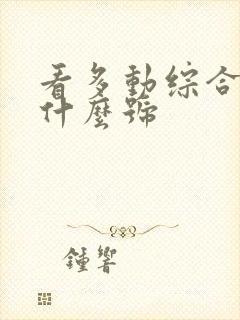 看多動綜合
什麼號
鍾響